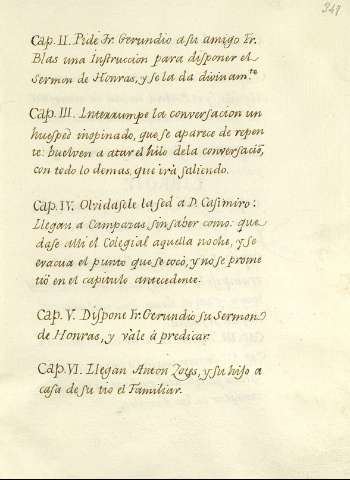 349
Cap. II. Pide Fr. Gerundio a su amigo Fr.
Blas una Instruccion para disponer el
Sermon de Honras, y se la da divinam.te
Cap. III. Interrumpe la conversacion un
huesped inopinado, que se aparece de repen
te: buelven a atar el hilo dela conversaciō,
con todo lo demas, que irà saliendo.
Cap. IV. Olvidasele la sed a D. Casimiro:
Llegan a Campazas sin saber como: que
dase alli el Colegial aquella noche, y se
evacua el punto que se tocò, y no se prome
tiō en el capitulo antecedente.
Cap. V. Dispone Fr. Gerundio su Sermon
de Honras, y vàle à predicar.
Cap. VI. Llegan Anton Zotes, y su hijo a
casa de su tio el Familiar.